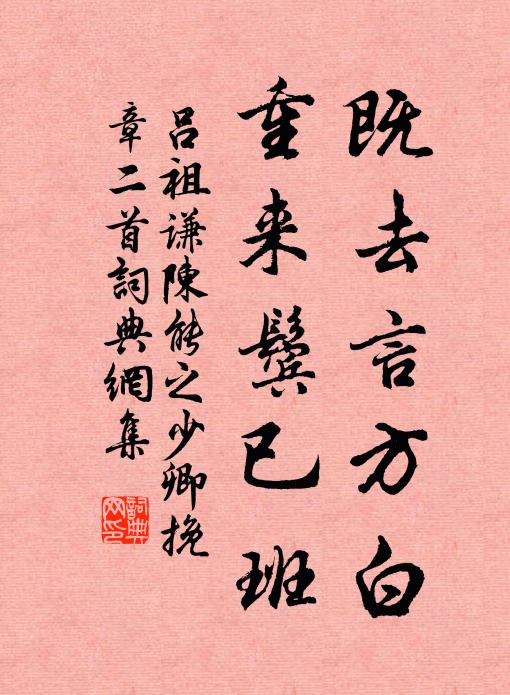 既去言方白
重来鬓已班
吕祖谦陳能之少卿挽
章二首詞典網集
詞典網印